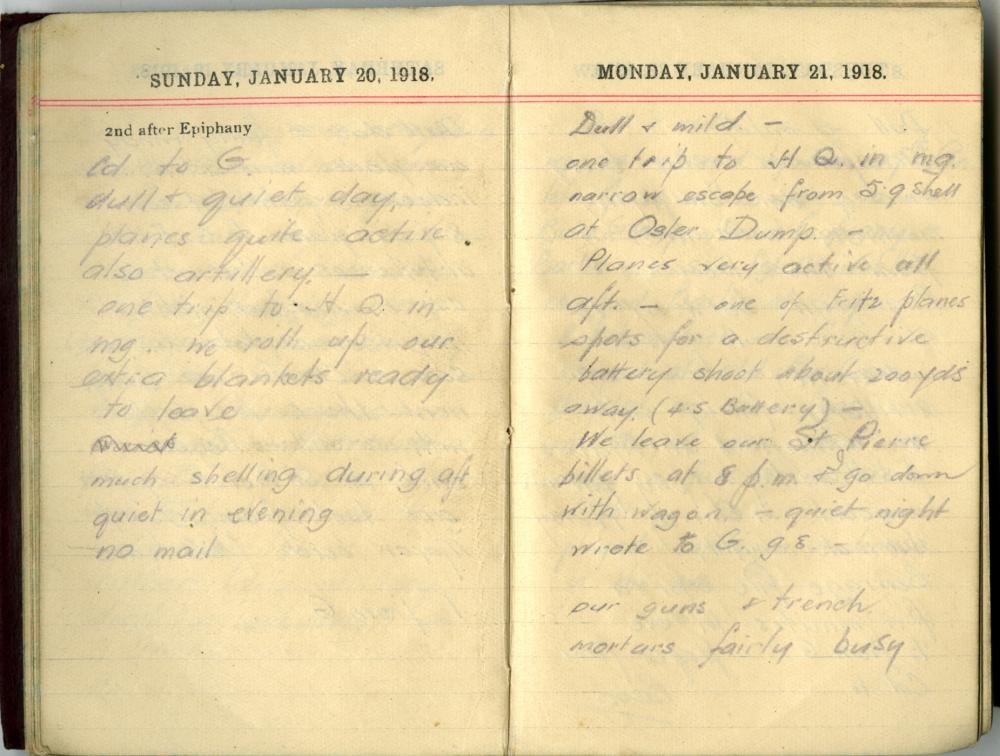 SUNDAY, JANUARY 20, 1918.
2nd after Epiphany
Cd to G.
dull & quiet day.
planes quite active
also artillery. —
one trip to H Q. in
mg. we roll up our
extra blankets ready
to leave
much shelling during aft
quiet in evening
no mail
MONDAY, JANUARY 21, 1918.
Dull & mild —
one trip to H Q. in mg.
narrow escape from 5.9 shell
at Osler Dump. —
Planes very active all
aft. — one of Fritz planes
spots for a destructive
battery shoot about 200 yds
away. (4.5 Battery) —
We leave our St Pierre
billets at 8 p.m. & go down
with wagon. — quiet night
wrote to G. g.E. —
our guns & trench
mortars fairly busy